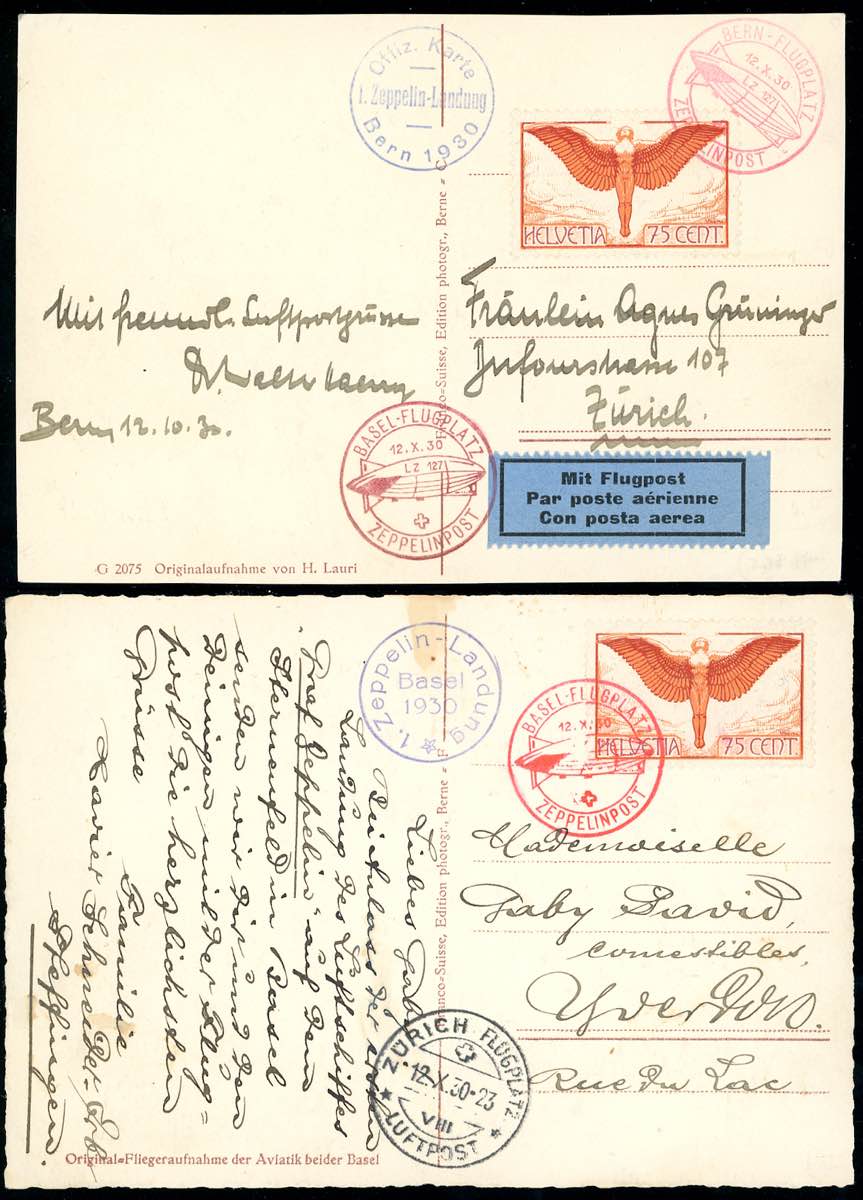 Offiz. Karte
1. Zeppelin-Landung
Bern 1930
BERN-FLUGPLATZ
12.X.30
LZ 127
ZEPPELINPOST
HELVETIA 75 CENT.
Mit freundl. Luftpostgrüssen
Bern 12.10.30.
Fräulein Agnes Grüninger
107
Zürich.
BASEL-FLUGPLATZ
12.X.30
LZ 127
ZEPPELINPOST
Mit Flugpost
Par poste aérienne
Con posta aerea
Franco-Suisse, Edition photogr., Berne =
G 2075 Originalaufnahme von H. Lauri
1. Zeppelin-Landung
Basel
1930
BASEL-FLUGPLATZ
12.X.30
ZEPPELINPOST
HELVETIA 75 CENT.
Liebes Gaby
Beianlass der ersten
Landung des Luftschiffes
"Graf Zeppelin" auf dem
Sternenfeld in Basel
senden wir Dir und den
Deinigen mit der Flug-
post die herzlichsten
Grüsse
Familie
Xavier Schneider-Erb
Pfeffingen.
Mademoiselle
Gaby David,
comestibles,
Yverdon.
Rue du Lac
Franco-Suisse, Edition photogr., Berne = F
ZÜRICH FLUGPLATZ
12.X.30-23
VIII
LUFTPOST
Original=Fliegeraufnahme der Aviatik beider Basel